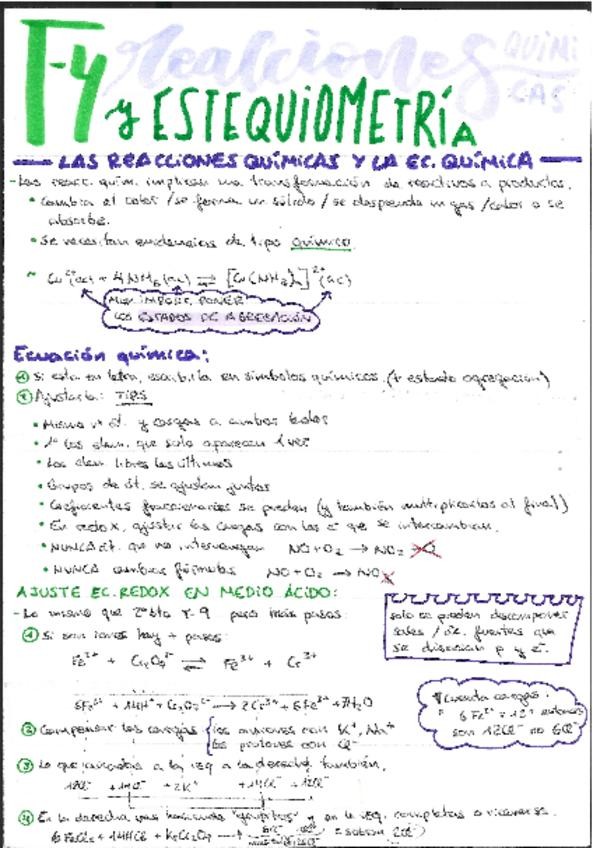 T-4 reacciones QUÍMI
CAS
y ESTEQUIOMETRÍA
LAS REACCIONES QUÍMICAS Y LA EC. QUÍMICA
- Las reacc. quím. implican una transformación de reactivos a productos.
• Cambia el color / se forma un sólido / se desprende un gas / calor o se
absorbe.
• Se necesitan evidencias de tipo químico.
~ Cu²⁺(ac) + 4NH₃(ac) ⇌ [Cu(NH₃)₄]²⁺(ac)
MUY IMPORT. PONER
LOS ESTADOS DE AGREGACIÓN
Ecuación química:
① Si esta en letra, escribirla en símbolos químicos. (+ estado agregación)
② Ajustarla: TIPS
• Mismo nº át. y cargas a ambos lados
• 1º los elem. que solo aparecen 1 vez
• Los elem. libres los últimos
• Grupos de át. se ajustan juntos
• Coeficientes fraccionarios se pueden (y también multiplicarlos al final)
• En redox, ajustar las cargas con los e⁻ que se intercambian.
• NUNCA át. que no intervengan NO + O₂ → NO₂
• NUNCA cambiar fórmulas NO + O₂ → NO
AJUSTE EC. REDOX EN MEDIO ÁCIDO:
- Lo mismo que 2º bto T-9 pero más pasos:
① Si son iones hay + pasos:
Fe²⁺ + Cr₂O₇²⁻ ⇌ Fe³⁺ + Cr³⁺
solo se pueden descomponer
sales / ác. fuertes que
se disocian
6Fe²⁺ + 14H⁺ + Cr₂O₇²⁻ → 2Cr³⁺ + 6Fe³⁺ + 7H₂O
② Compensar las cargas los aniones con K⁺, Na⁺
los protones con Cl⁻
cuenta cargas.
6 Fe²⁺ = 12⁺ entonces
son 12Cl⁻ no 6Cl⁻
③ Lo que añadido a la izq a la derecha también.
12Cl⁻ + 14Cl⁻ + 2K⁺ + 14Cl⁻ + 12Cl⁻
④ En la derecha vas haciendo y en la izq. completas o viceversa.
6FeCl₂ + 14HCl + K₂Cr₂O₇ →